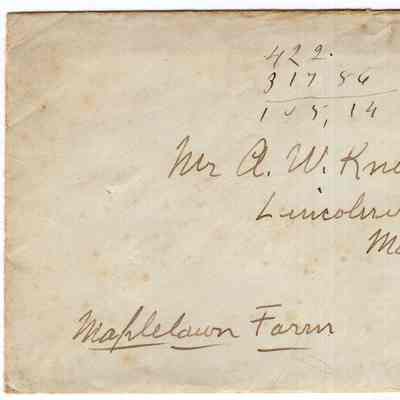 422.
317 86
105, 14
Mr A. W. Kne
Lincolnv
Ma
Maplelawn Farm